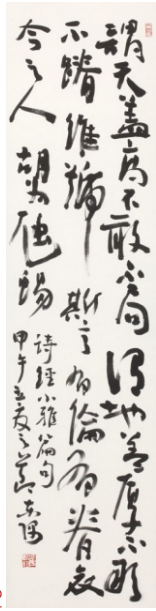 謂天蓋高不敢不局謂地蓋厚不敢
不蹐維號斯言有倫有脊哀
今之人胡為虺蜴
詩經小雅篇句
甲午立夏之節